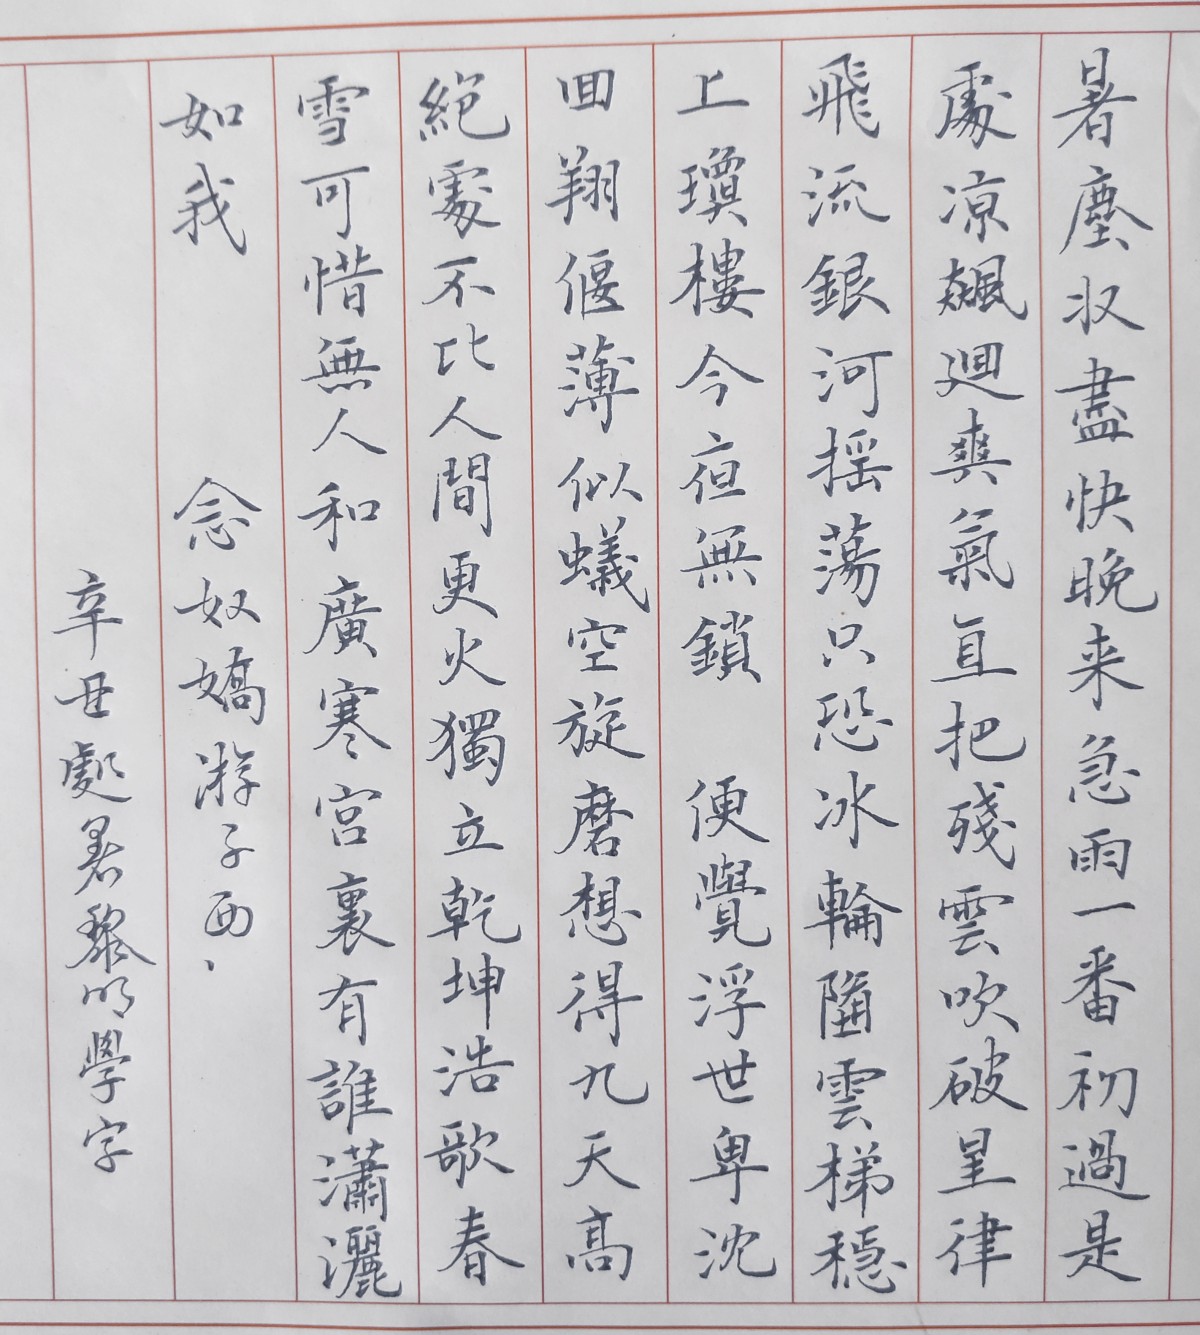 暑塵收盡快晚来急雨一番初過是
處凉飆迴爽氣直把殘雲吹破星律
飛流銀河摇蕩只恐冰輪墮雲梯穩
上瓊樓今夜無鎖 便覺浮世卑沈
回翔偃薄似蟻空旋磨想得九天高
絕處不比人間更火獨立乾坤浩歌春
雪可惜無人和廣寒宮裏有誰瀟灑
如我 念奴嬌游子西、
辛丑處暑黎明學字